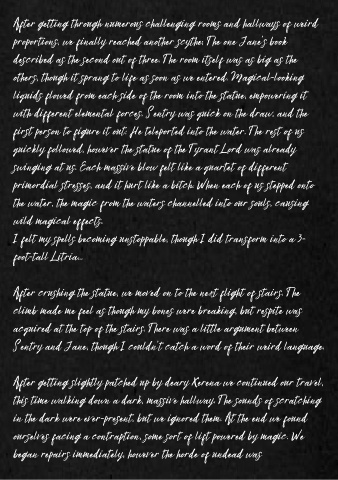 After getting through numerous challenging rooms and hallways of weird
proportions, we finally reached another scythe. The one Jane's book
described as the second out of three. The room itself was as big as the
others, though it sprang to life as soon as we entered. Magical-looking
liquids flowed from each side of the room into the statue, empowering it
with different elemental forces. Sentry was quick on the draw, and the
first person to figure it out. He teleported into the water. The rest of us
quickly followed, however the statue of the Tyrant Lord was already
swinging at us. Each massive blow felt like a quartet of different
primordial stresses, and it hurt like a bitch. When each of us stepped onto
the water, the magic from the waters channelled into our souls, causing
wild magical effects.
I felt my spells becoming unstoppable, though I did transform into a 3-
foot-tall Litria...
After crushing the statue, we moved on to the next flight of stairs. The
climb made me feel as though my bones were breaking, but respite was
acquired at the top of the stairs. There was a little argument between
Sentry and Jane, though I couldn't catch a word of their weird language.
After getting slightly patched up by deary Kerena we continued our travel,
this time walking down a dark, massive hallway. The sounds of scratching
in the dark were ever-present, but we ignored them. At the end we found
ourselves facing a contraption, some sort of lift powered by magic. We
began repairs immediately, however the horde of undead was